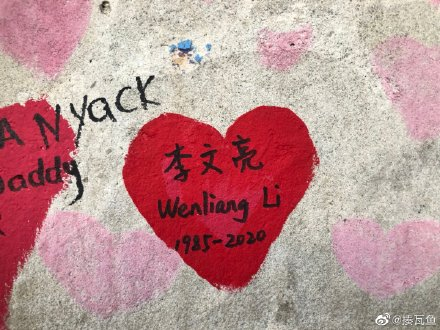 ANyack
Daddy
李文亮
Wenliang Li
1985-2020
@矮瓦鱼